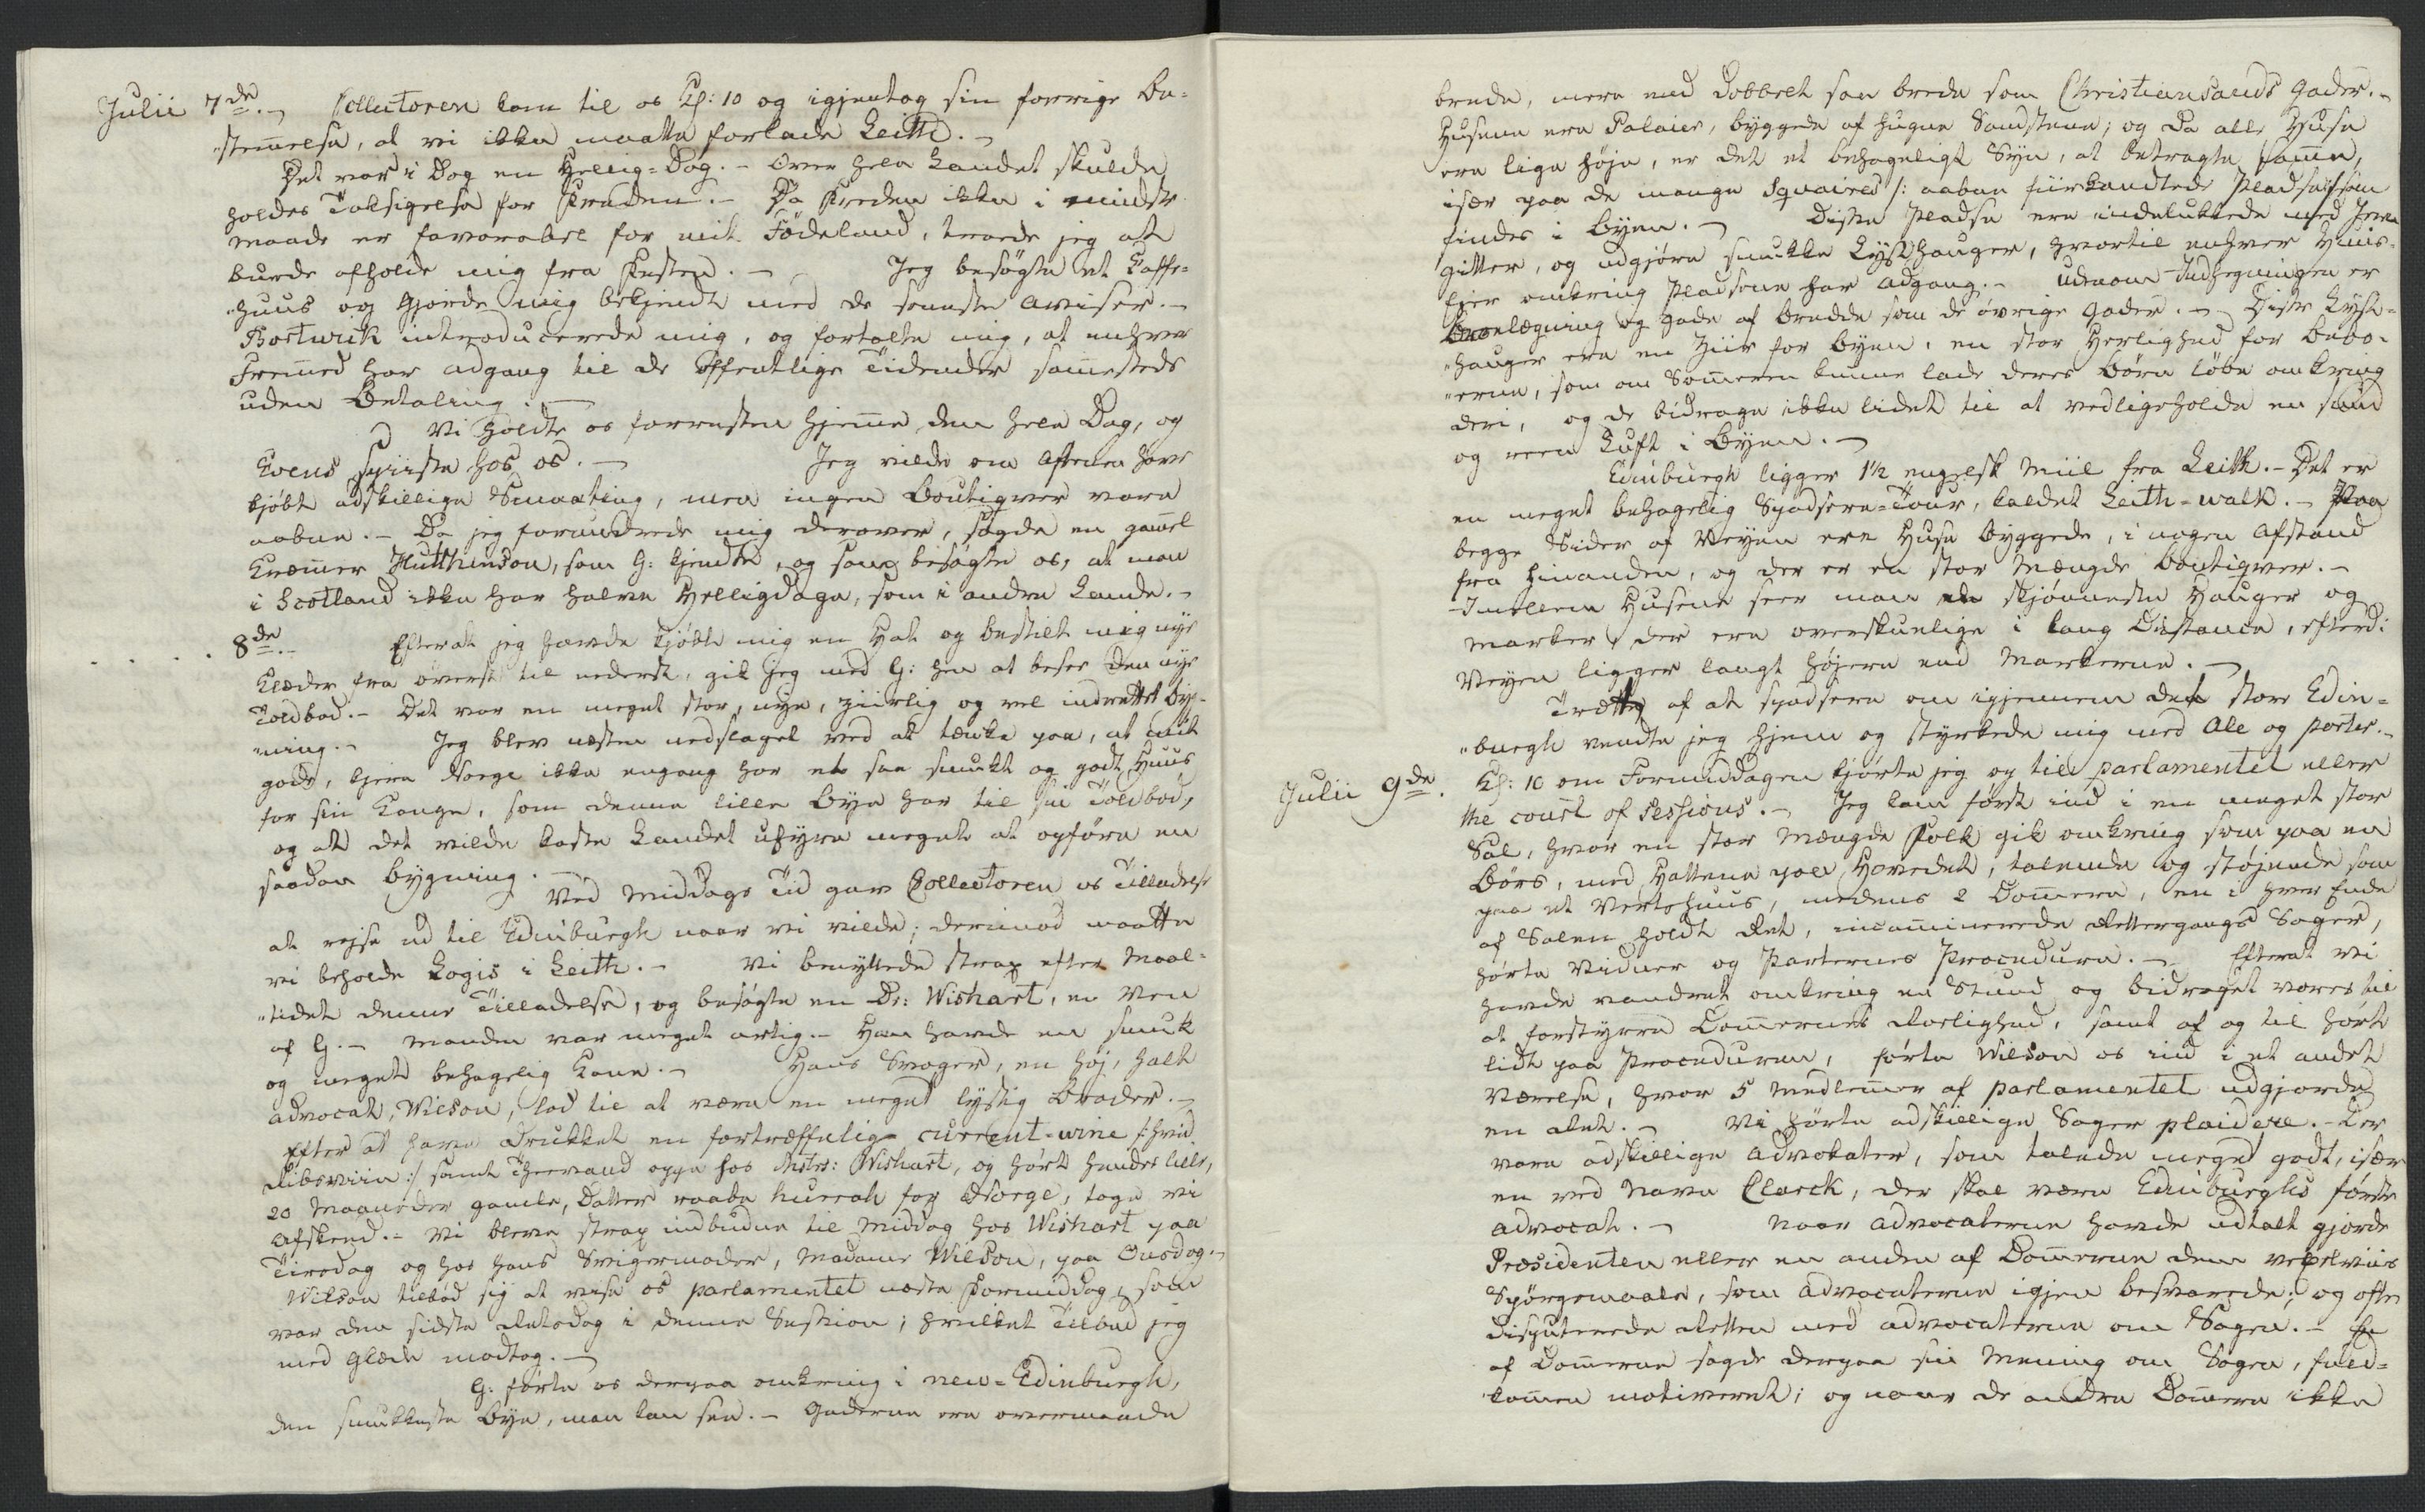 Julii 7de. Collectoren kom til os Kl: 10 og igjentog sin forrige Be=
"stemelse, at vi ikke maatte forlade Leith. –
Det var i Dag en Hellig=Dag. – Over hele Landet skulde
holdes Taksigelse for Freden. – Da Freden ikke i mindste
maade er favorabel for mit Födeland, troede jeg at
burde afholde mig fra Festen. – Jeg besögte et Kaffe=
"huus og gjorde mig bekjendt med de seneste Aviser. –
Bortwick introducerede mig, og fortalte mig, at enhver
Fremed har adgang til de offentlige Tidender sammesteds
uden Betaling. –
Vi holdte os forresten hjemme den hele Dag, og
Evens spiiste hos os. – Jeg vilde om Aftenen have
kjöbt adskillige Smaating, men ingen Boutiqver vare
aabne. – Da jeg forundrede mig derover, sagde en gamel
Kræmer Hutthinson, som G: kjendte, og som besögte os, at man
i Scotland ikke har halve Helligdage, som i andre Lande. –
8de. – Efterat jeg havde kjöbt mig en Hat og bestilt mig nye
Klæder fra överst til nederst, gik jeg med G: hen at besee den nye
Toldbod. – Det var en meget stor, nye, ziirlig og vel indrettet Byg=
"ning. – Jeg blev næsten nedslaget ved at tænke paa, at mit
gode, kjere Norge ikke engang har et saa smukt og godt Huus
for sin Konge, som denne lille Bye har til sin Toldbod,
og at det vilde koste Landet uhyre meget at opföre en
saadan Bygning. –
Ved Middags Tid gav Collectoren os Tilladelse
at rejse ud til Edinburgh naar vi vilde; derimod maatte
vi beholde Logis i Leith. – Vi benyttede strax efter Maal=
"tidet denne Tilladelse, og besögte en Dr: Wishart, en Ven
af G. – Manden var meget artig. – Han havde en smuk
og meget behagelig Kone. – Hans Svoger, en höj, halt
Advocat, Wilson, lod til at være en meget lystig Broder. –
Efter at have drukket en fortræffelig current=wine /: hvid
Ribsviin :/ samt Theevand oppe hos Mstrs: Wishart, og hört hendes lille,
20 Maaneder gamle, Datter raabe hurrah for Norge, toge vi
Afskeed. – Vi bleve strax indbudne til Middag hos Wishart paa
Tirsdag og hos hans Svigermoder, Madame Wilson, paa Onsdag. –
Wilson tilböd sig at vise os parlamentet næste Formiddag, som
var den sidste Retsdag i denne Session; hvilket Tilbud jeg
med Glæde modtog. –
G: förte os derpaa omkring i new=Edinburgh,
den smukkeste Bye, man kan see. – Gaderne ere overmaade
brede, mere end dobbelt saa brede som Christiansands Gader. –
Husene ere Palaier, byggede af hugne Sandstene; og da alle Huse
ere lige höje, er det et behageligt Syn, at betragte samme,
især paa de mange Squaires /: aabne fiirkandtede Pladse :/ som
findes i Byen. – Disse Pladse ere indelukkede med Jern
gitter, og udgjöre smukke Lysthauger, hvortil enhver Huus=
Ejer omkring Pladsene har Adgang. – udenom Indhegningen er
Broelægning og Gade af bredde som de övrige Gader. – Disse Lyst=
"hauger ere en Ziir for Byen, en stor Herlighed for Bebo=
"erne, som om Sommeren kunne lade deres Börn löbe omkring
deri, og de bidrage ikke lidet til at vedligeholde en sund
og reen Luft i Byen. –
Edinburgh ligger 1½ engelsk Miil fra Leith. – Det er
en meget behagelig Spadsere=Tour, kaldet Leith=walk. – Paa
begge Sider af Vejen ere Huse byggede, i nogen Afstand
fra hinanden, og der er en stor Mængde Boutiqver. –
Imellem Husene seer man de skjönneste Hauger og
Marker, der ere overskuelige i lang Distance, efterdi
Vejen ligger langt höjere end Markerne. –
Træt af at spadsere om igjennem det store Edin=
"burgh vendte jeg hjem og styrkede mig med Ale og porter. –
Julii 9de. Kl: 10 om Formiddagen kjörte jeg op til parlamentet eller
the court of sessions. – Jeg kom först ind i en meget stor
Sal, hvor en stor Mængde Folk gik omkring som paa en
Börs, med Hattene paa Hovedet, talende og stöjende som
paa et Vertshuus, medens 2 Dommere, en i hver Ende
af Salen holdt Ret, incaminerede Rettergangs Sager,
hörte Vidner og Parternes Procedure. – Efterat vi
havde vandret omkring en Stund og bidraget vores til
at forstyrre Dommernes Rolighed, samt af og til hört
lidt paa Proceduren, förte Wilson os ind i et andet
Værelse, hvor 5 Medlemer af parlamentet udgjorde
en Ret. – Vi hörte adskillige Sager plaidere. – Der
vare adskillige Advokater, som talede meget godt, især
en ved Navn Clarck, der skal være Edinburghs förste
Advocat. – Naar Advocaterne havde udtalt gjorde
Præsidenten eller en anden af Dommerne dem vexelviis
Spörgsmaale, som Advocaterne igjen besvarede; og ofte
disputerede Retten med Advocaterne om Sagen. – En
af Dommerne sagde derpaa sin Mening om Sagen, fuld=
"kommen motiveret; og naar de andre Dommere ikke